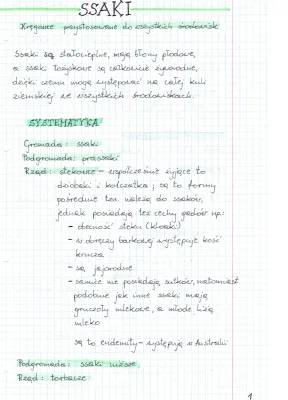 SSAKI
Kręgowce przystosowane do wszystkich środowisk
Ssaki są stałocieplne, mają błony płodowe,
a ssaki łożyskowe są całkowicie żyworodne,
dzięki czemu mogą występować na całej kuli
ziemskiej we wszystkich środowiskach.
SYSTEMATYKA
Gromada: ssaki
Podgromada: prassaki
Rząd: stekowce - współcześnie żyjące to
dziobaki i kolczatka, są to formy
pośrednie tzn. należą do ssaków,
jednak posiadają też cechy gadów np:
- obecność steku (kloaki)
- w obręczy barkowej występuje kość
krucza
- są jajorodne
- samice nie posiadają sutków, natomiast
podobnie jak inne ssaki mają
gruczoły mlekowe, a młode liżą
mleko
są to endemity - występują w Australii
Podgromada: ssaki niższe
Rząd: torbacze
1